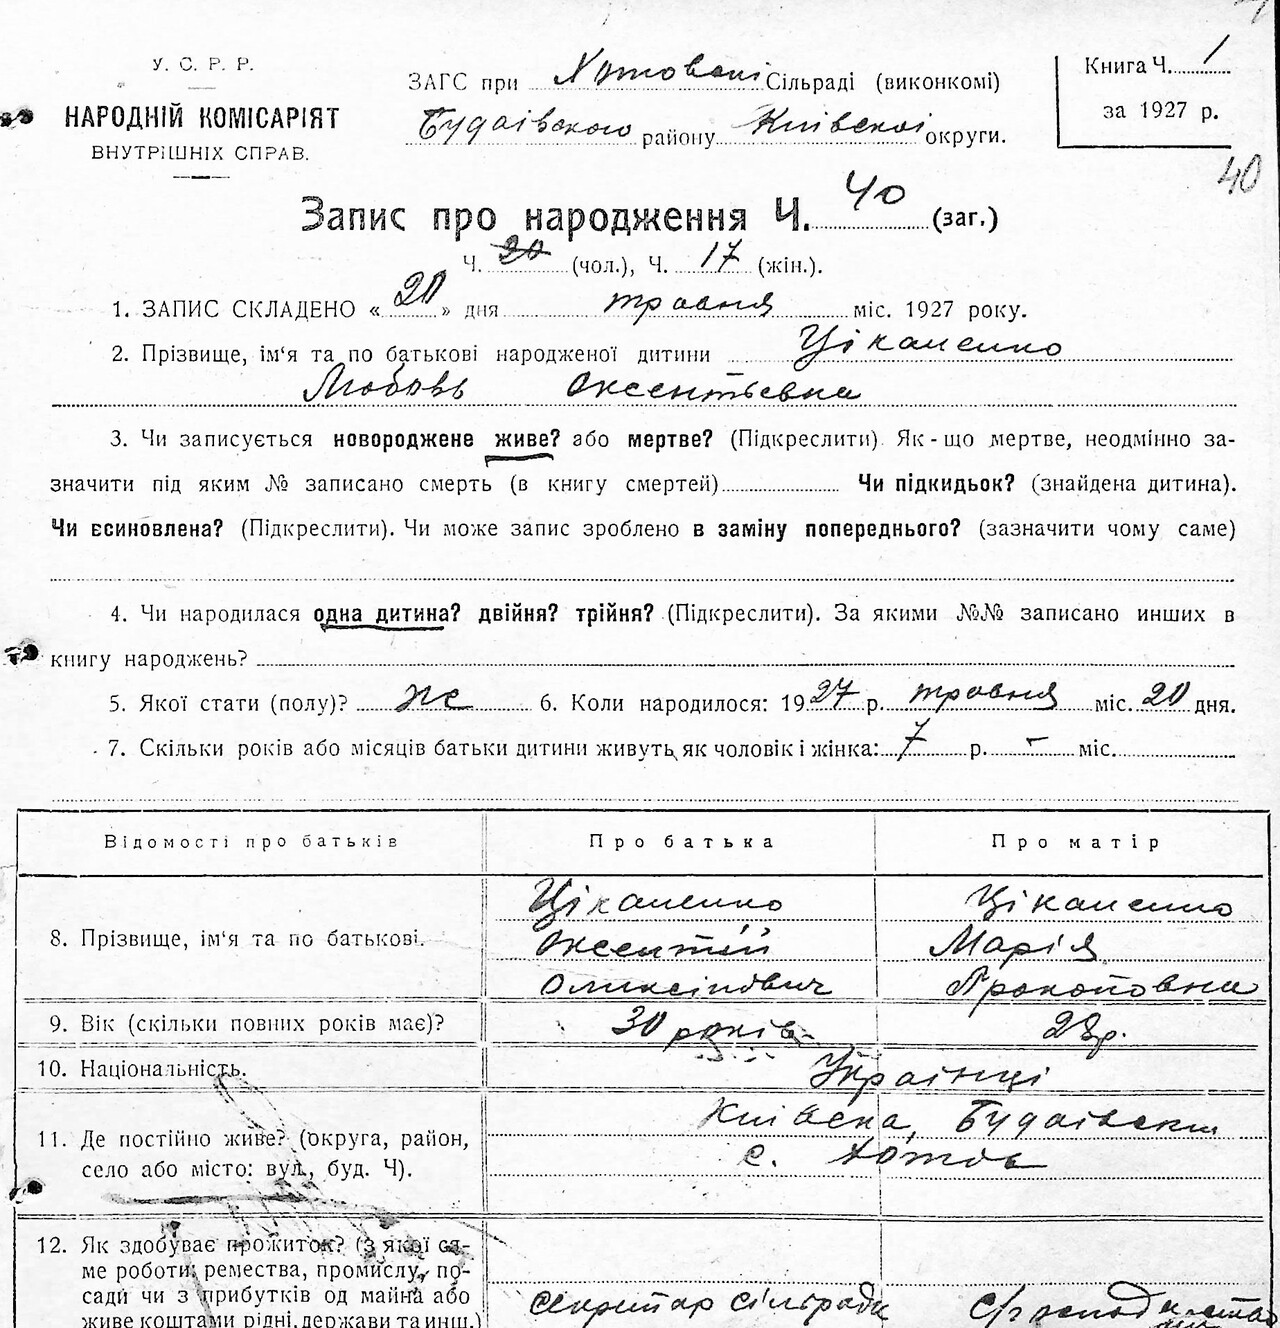 У. С. Р. Р.
НАРОДНІЙ КОМІСАРІЯТ
ВНУТРІШНІХ СПРАВ.
ЗАГС при Хотовскі Сільраді (виконкомі)
Будаівского району Київскоі округи.
Книга Ч. 1
за 1927 р.
40
Запис про народження Ч. 40 (заг.)
Ч. 20 (чол.), Ч. 17 (жін.).
1. ЗАПИС СКЛАДЕНО « 20 » дня травня міс. 1927 року.
2. Прізвище, ім'я та по батькові народженої дитини Цікаленко
Любовь Оксентьевна
3. Чи записується новороджене живе? або мертве? (Підкреслити). Як-що мертве, неодмінно за-
значити під яким № записано смерть (в книгу смертей) Чи підкидьок? (знайдена дитина).
Чи єсиновлена? (Підкреслити). Чи може запис зроблено в заміну попереднього? (зазначити чому саме)
4. Чи народилася одна дитина? двійня? трійня? (Підкреслити). За якими №№ записано инших в
книгу народжень?
5. Якої стати (полу)? же 6. Коли народилося: 1927 р. травня міс. 20 дня.
7. Скільки років або місяців батьки дитини живуть як чоловік і жінка: 7 р. - міс.
Відомості про батьків Про батька Про матір
8. Прізвище, ім'я та по батькові.
Цікаленко Цікаленко
Оксентій Марія
Олексійович Прокоповна
9. Вік (скільки повних років має)? 30 років 28р.
10. Національність. Українці
11. Де постійно живе? (округа, район,
село або місто: вул., буд. Ч).
Київска, Будаівский
с. Хотов
12. Як здобуває прожиток? (з якої са-
ме роботи, ремества, промислу, по-
сади чи з прибутків од майна або
живе коштами рідні, держави та инш.)
секритар сільради с/господ